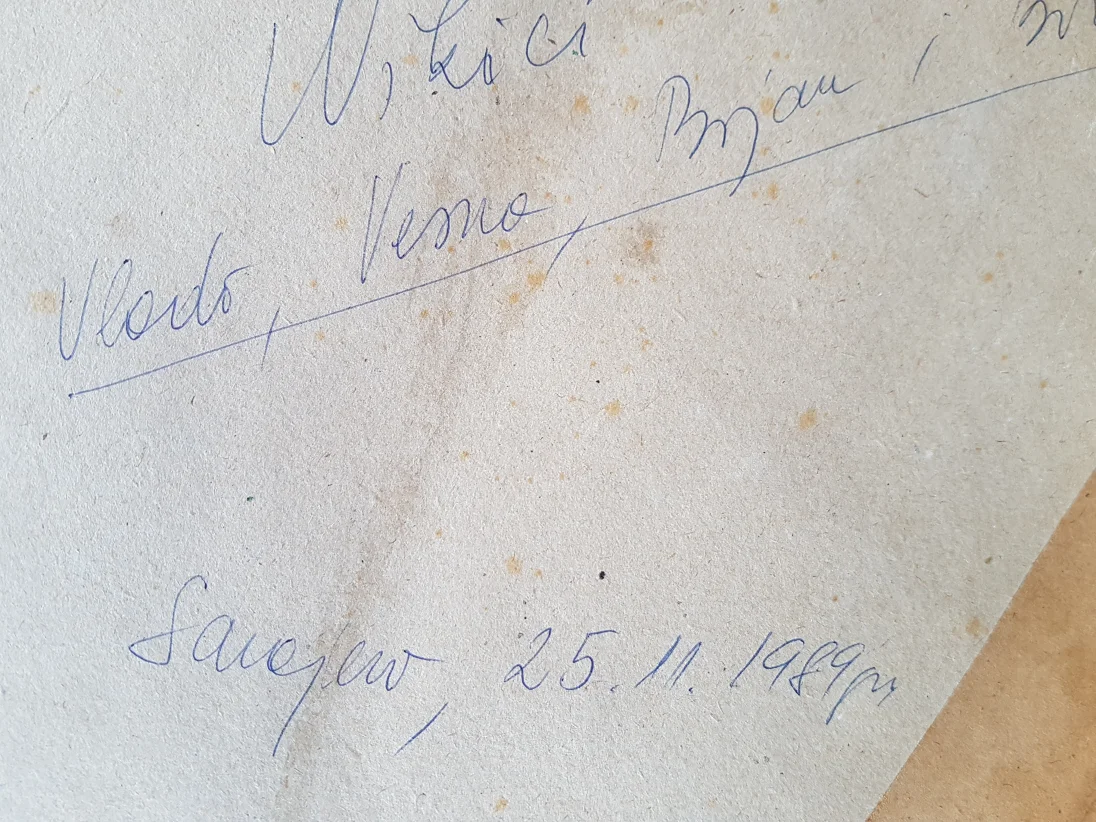 Nikići
Vlado, Vesna, Bojan i
Sarajevo, 25.11.1989